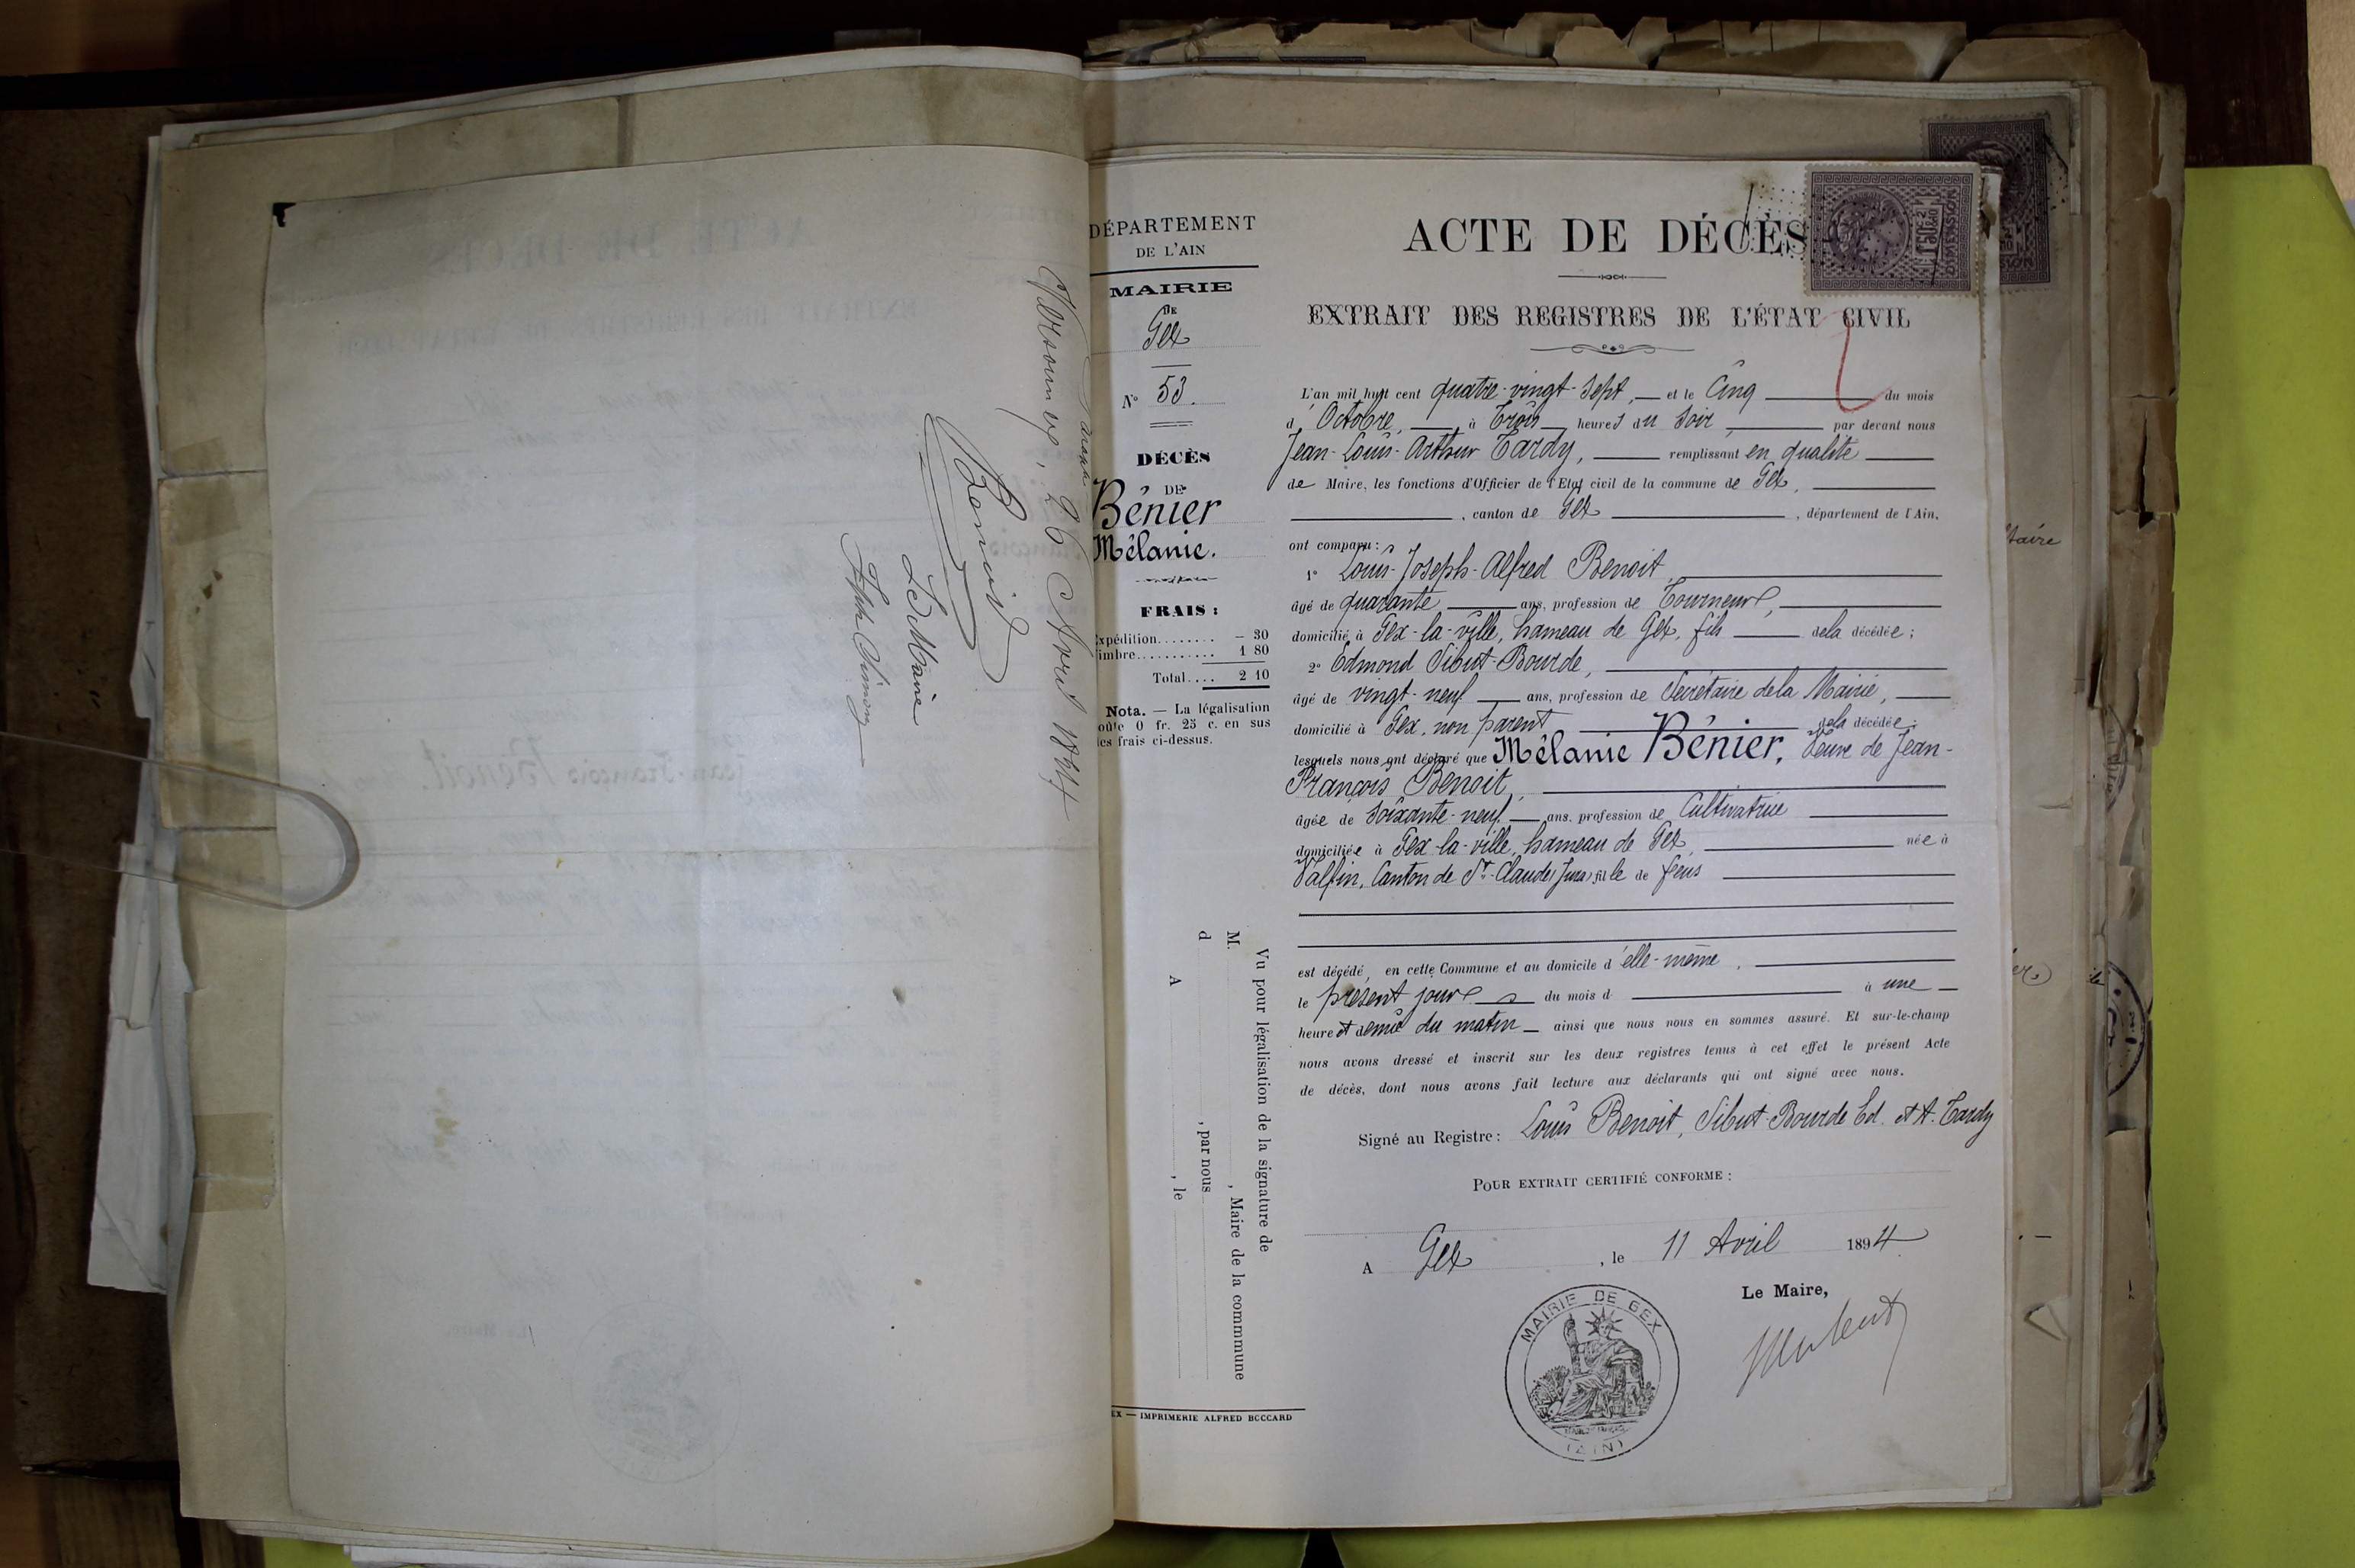 Versonnex, 26 Avril 1894
Benoit
Le Maire
DÉPARTEMENT
DE L'AIN
MAIRIE
DE
Gex
N° 53.
DÉCÈS
DE
Bénier
Mélanie.
FRAIS :
Expédition........ — 30
Timbre........... 1 80
Total.... 2 10
Nota. — La légalisation
coûte 0 fr. 25 c. en sus
des frais ci-dessus.
Vu pour légalisation de la signature de
M. , Maire de la commmune
d , par nous
A , le
EX — IMPRIMERIE ALFRED BOCCARD
ACTE DE DÉCÈS
EXTRAIT DES REGISTRES DE L'ÉTAT CIVIL
L'an mil huit cent quatre-vingt-sept, — et le Cinq — du mois
d'Octobre, — à Trois — heures du soir, — par devant nous
Jean-Louis-Arthur Tardy, — remplissant en qualité —
de Maire, les fonctions d'Officier de l'Etat civil de la commune de Gex, —
— , canton de Gex — , département de l'Ain,
ont comparu :
1° Louis-Joseph-Alfred Benoit, —
âgé de quarante — ans, profession de Tourneur, —
domicilié à Gex-la-ville, hameau de Gex, fils — de la décédée ;
2° Edmond Sibut-Bourde, —
âgé de vingt-neuf — ans, profession de Secrétaire de la Mairie, —
domicilié à Gex, non parent — de la décédée ;
lesquels nous ont déclaré que Mélanie Bénier, Veuve de Jean-
François Benoit, —
âgée de soixante-neuf — ans, profession de Cultivatrice —
domiciliée à Gex-la-ville, hameau de Gex, — née à
Valfin, Canton de St-Claude (Jura) fille de feus —
est décédé, en cette Commune et au domicile d'elle-même, —
le présent jour — du mois d — à une —
heure et demie du matin — ainsi que nous nous en sommes assuré. Et sur-le-champ
nous avons dressé et inscrit sur les deux registres tenus à cet effet le présent Acte
de décès, dont nous avons fait lecture aux déclarants qui ont signé avec nous.
Signé au Registre : Louis Benoit, Sibut-Bourde Ed. et A. Tardy
POUR EXTRAIT CERTIFIÉ CONFORME :
A Gex , le 11 Avril 1894
Le Maire,
MAIRIE DE GEX
(AIN)